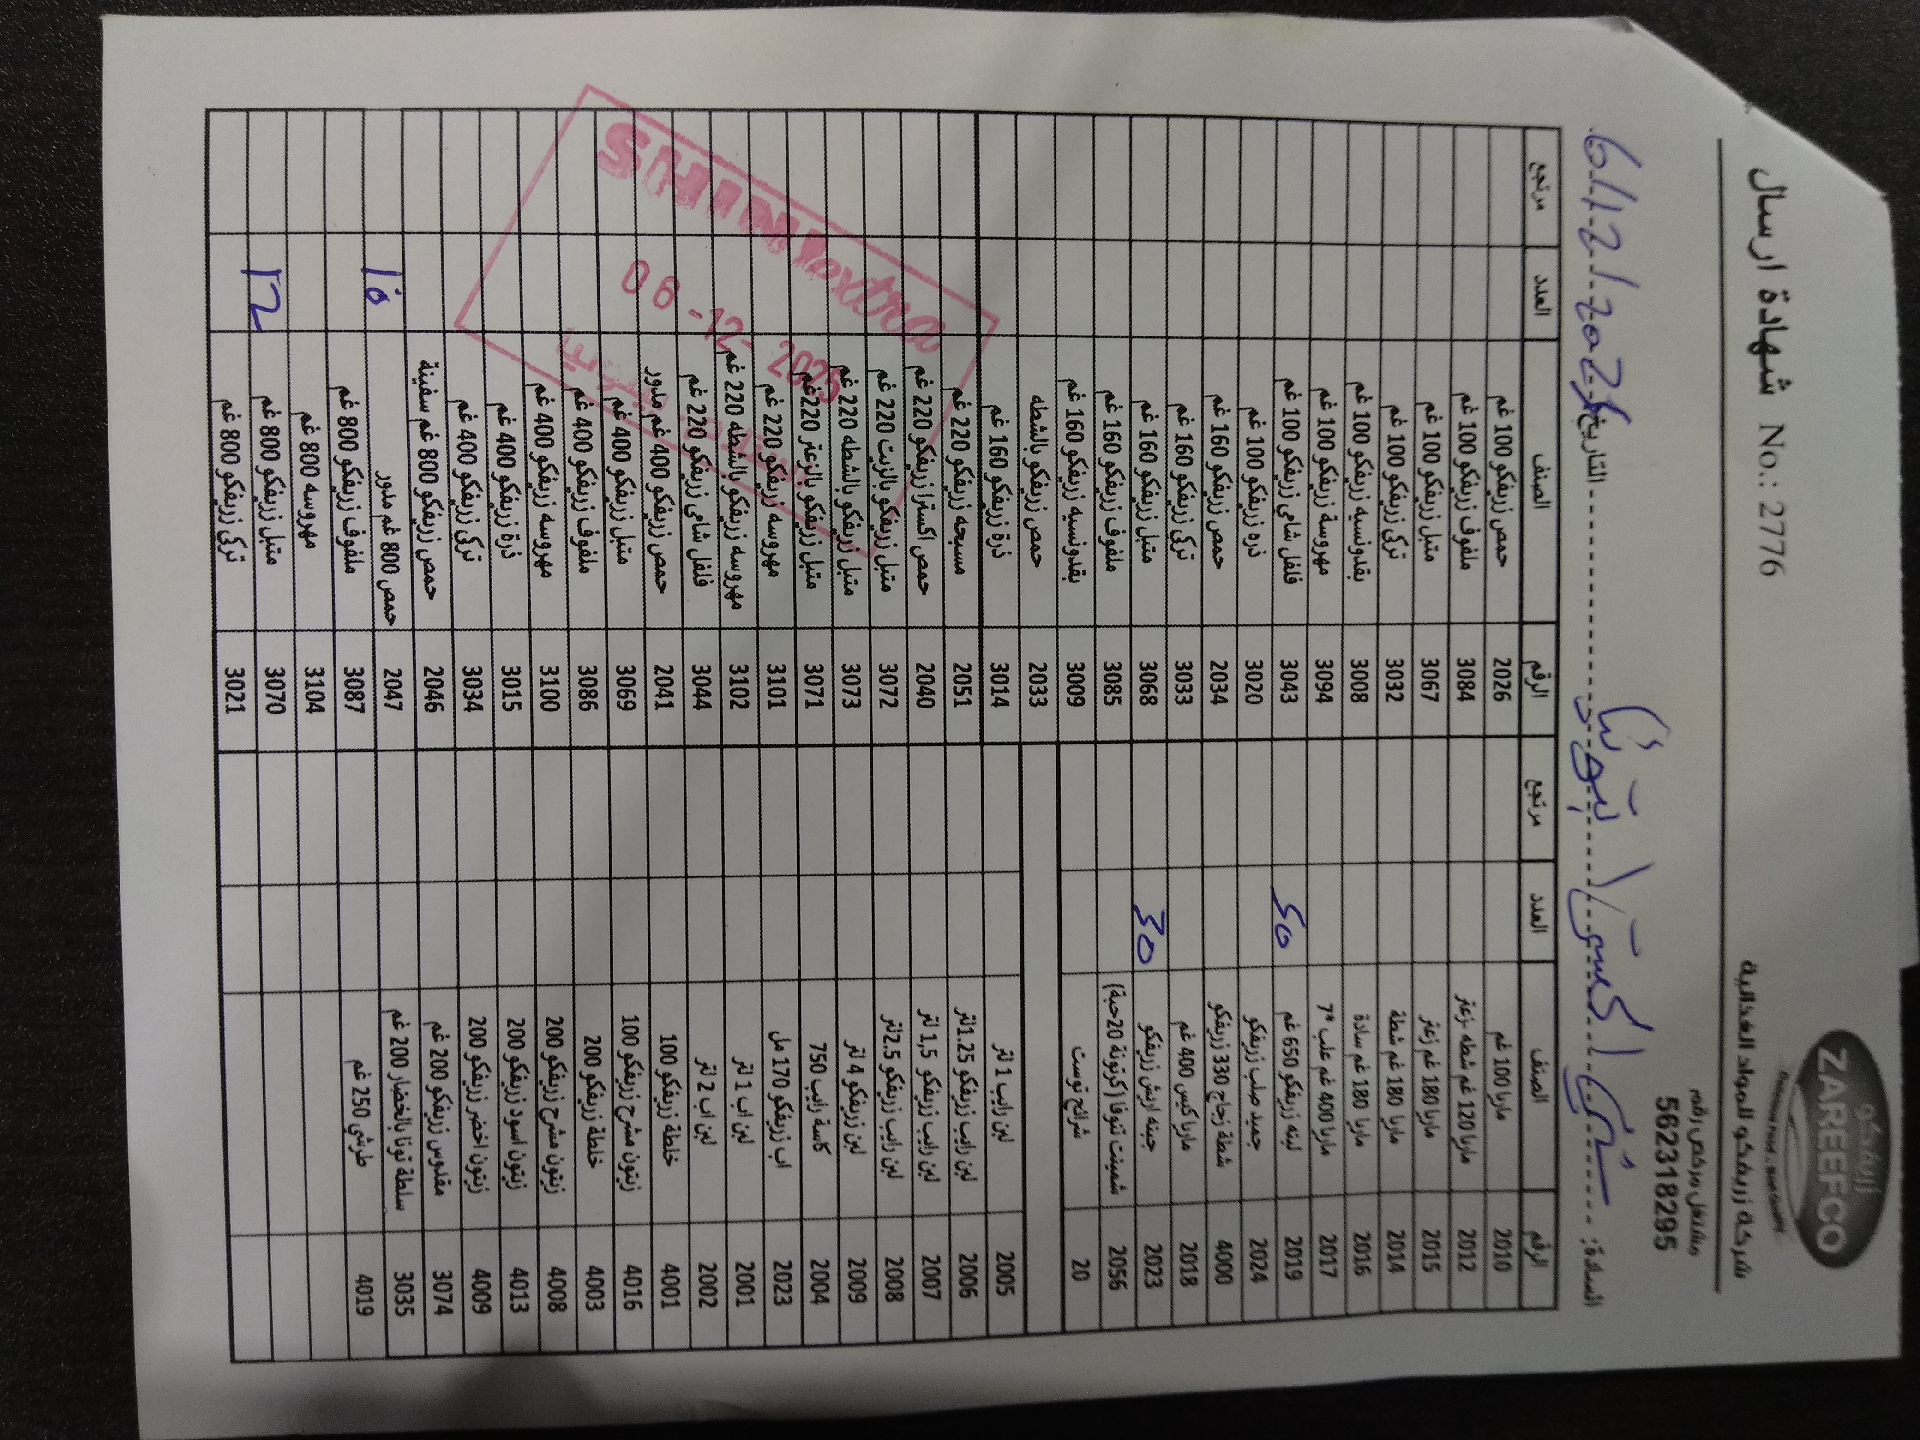 زريفكو
ZAREEFCO
شركة زريفكو للمواد الغذائية
مشتغل مرخص رقم
562318295
شهادة ارسال No.: 2776
السادة: شني اكسترا التاريخ 6/12/2025
الرقم الصنف العدد مرتجع الرقم الصنف العدد مرتجع
2010 ماريا 100 غم 2026 حمص زريفكو 100 غم
2012 ماريا 120 غم شطه -زعتر 3084 ملفوف زريفكو 100 غم
2015 ماريا 180 غم زعتر 3067 متبل زريفكو 100 غم
2014 ماريا 180 غم شطة 3032 تركي زريفكو 100 غم
2016 ماريا 180 غم سادة 3008 بقدونسيه زريفكو 100 غم
2017 ماريا 400 غم علب *7 3094 مهروسة زريفكو 100 غم
2019 لبنه زريفكو 650 غم 50 3043 فلفل شامي زريفكو 100 غم
2024 جميد صلب زريفكو 3020 ذره زريفكو 100 غم
4000 شطة زجاج 330 زريفكو 2034 حمص زريفكو 160 غم
2018 ماريا كيس 400 غم 3033 تركي زريفكو 160 غم
2023 جبنه ارش زريفكو 30 3068 متبل زريفكو 160 غم
2056 شمينت تنوفا (كرتونة 20حبة) 3085 ملفوف زريفكو 160 غم
20 شرائح توست 3009 بقدونسيه زريفكو 160 غم
2033 حمص زريفكو بالشطه
2005 لبن رايب 1 لتر 3014 ذرة زريفكو 160 غم
2006 لبن رايب زريفكو 1.25لتر 2051 مسبحه زريفكو 220 غم
2007 لبن رايب زريفكو 1,5لتر 2040 حمص اكسترا زريفكو 220 غم
2008 لبن رايب زريفكو 2.5لتر 3072 متبل زريفكو بالزيت 220 غم
2009 لبن زريفكو 4 لتر 3073 متبل زريفكو بالشطه 220 غم
2004 كاسة رايب 750 3071 متبل زريفكو بالزعتر 220 غم
2023 اب زريفكو 170 مل 3101 مهروسه زريفكو 220 غم
2001 لبن اب 1 لتر 3102 مهروسه زريفكو بالشطه 220 غم
2002 لبن اب 2 لتر 3044 فلفل شامي زريفكو 220 غم
4001 خلطة زريفكو 100 2041 حمص زريفكو 400 غم مدور
4016 زيتون مشرح زريفكو 100 3069 متبل زريفكو 400 غم
4003 خلطة زريفكو 200 3086 ملفوف زريفكو 400 غم
4008 زيتون مشرح زريفكو 200 3100 مهروسه زريفكو 400 غم
4013 زيتون اسود زريفكو 200 3015 ذرة زريفكو 400 غم
4009 زيتون اخضر زريفكو 200 3034 تركي زريفكو 400 غم
3074 مقدوس زريفكو 200 غم 2046 حمص زريفكو 800 غم سفينة
3035 سلطة تونا بالخضار 200 غم 2047 حمص 800 غم مدور 10
4019 طرشي 250 غم 3087 ملفوف زريفكو 800 غم
3104 مهروسه 800 غم
3070 متبل زريفكو 800 غم 12
3021 تركي زريفكو 800 غم
SHINI extra
08 -12- 2025